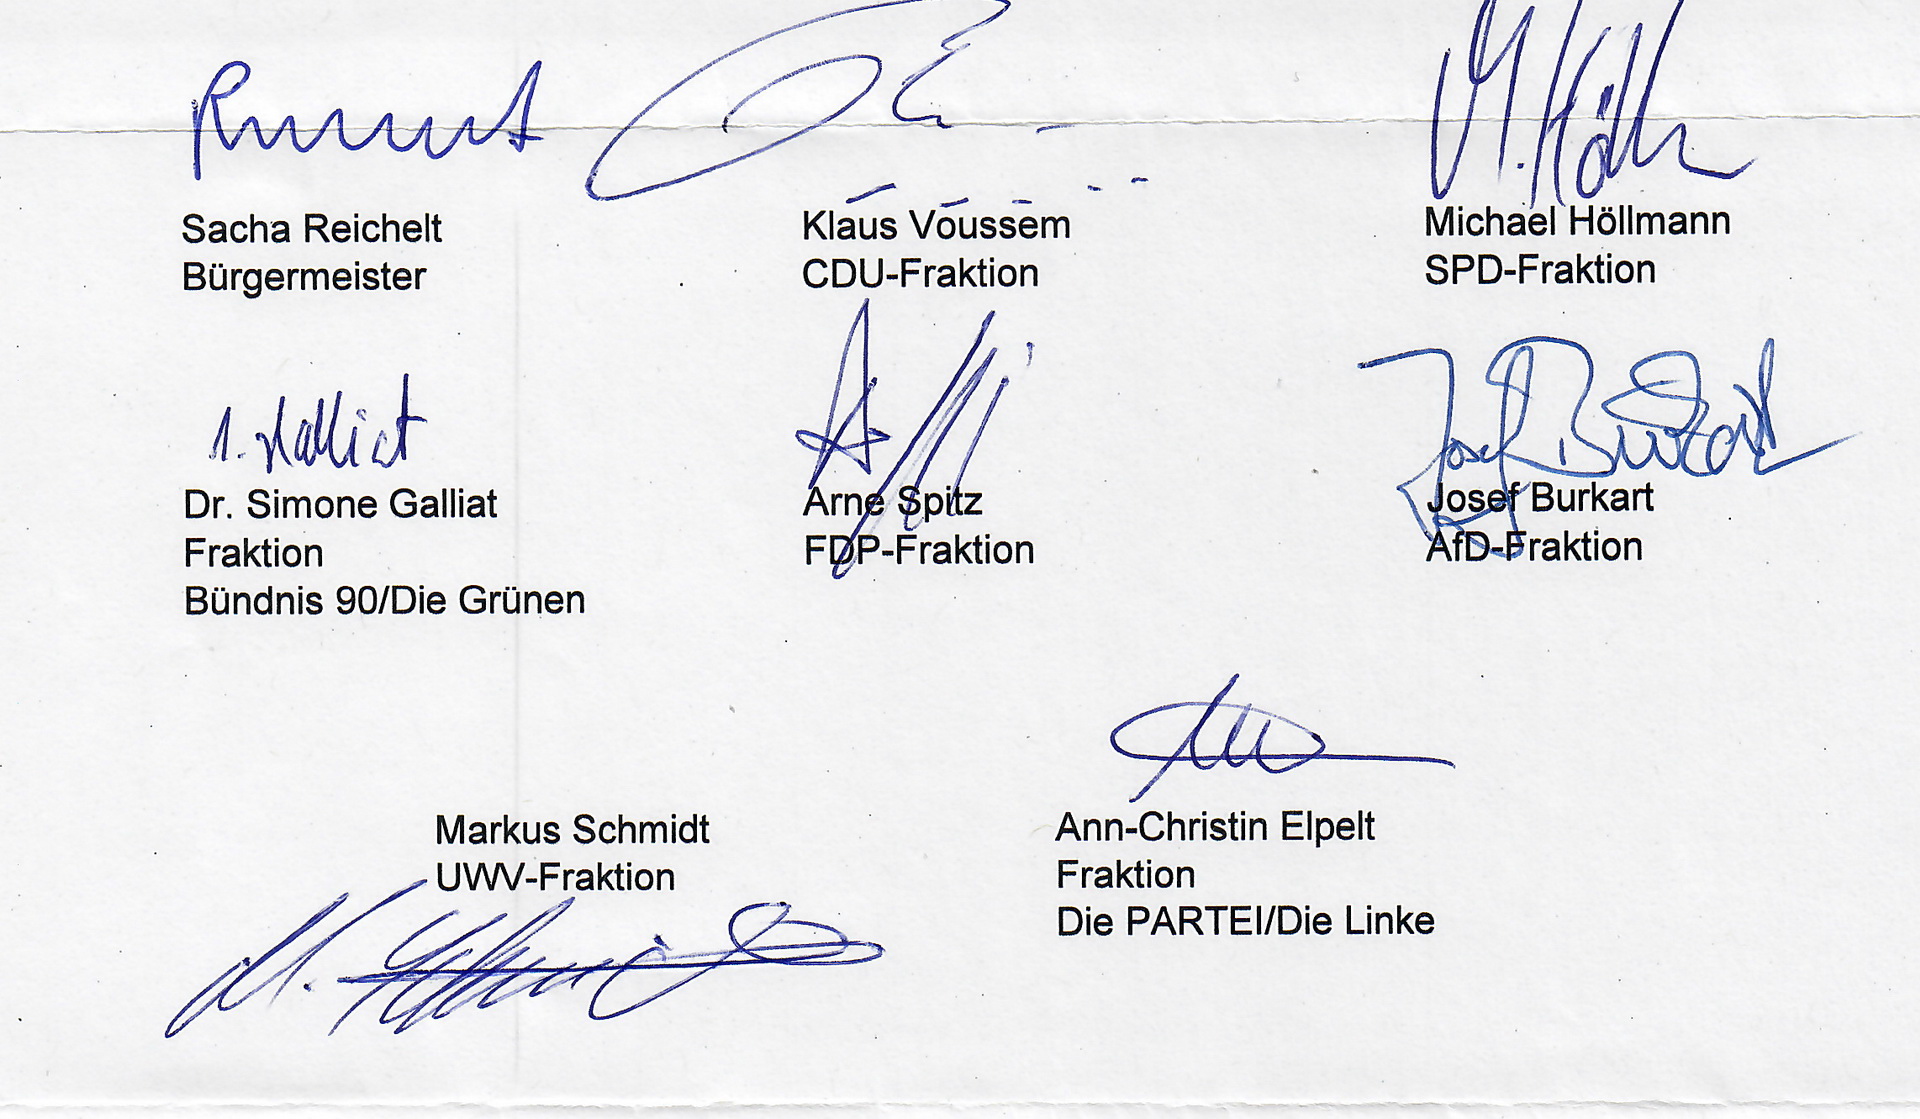 Sacha Reichelt
Bürgermeister
Klaus Voussem
CDU-Fraktion
M. Höll
Michael Höllmann
SPD-Fraktion
Dr. Simone Galliat
Fraktion
Bündnis 90/Die Grünen
Arne Spitz
FDP-Fraktion
Josef Burkart
Josef Burkart
AfD-Fraktion
Markus Schmidt
UWV-Fraktion
M. Schmidt
Ann-Christin Elpelt
Fraktion
Die PARTEI/Die Linke